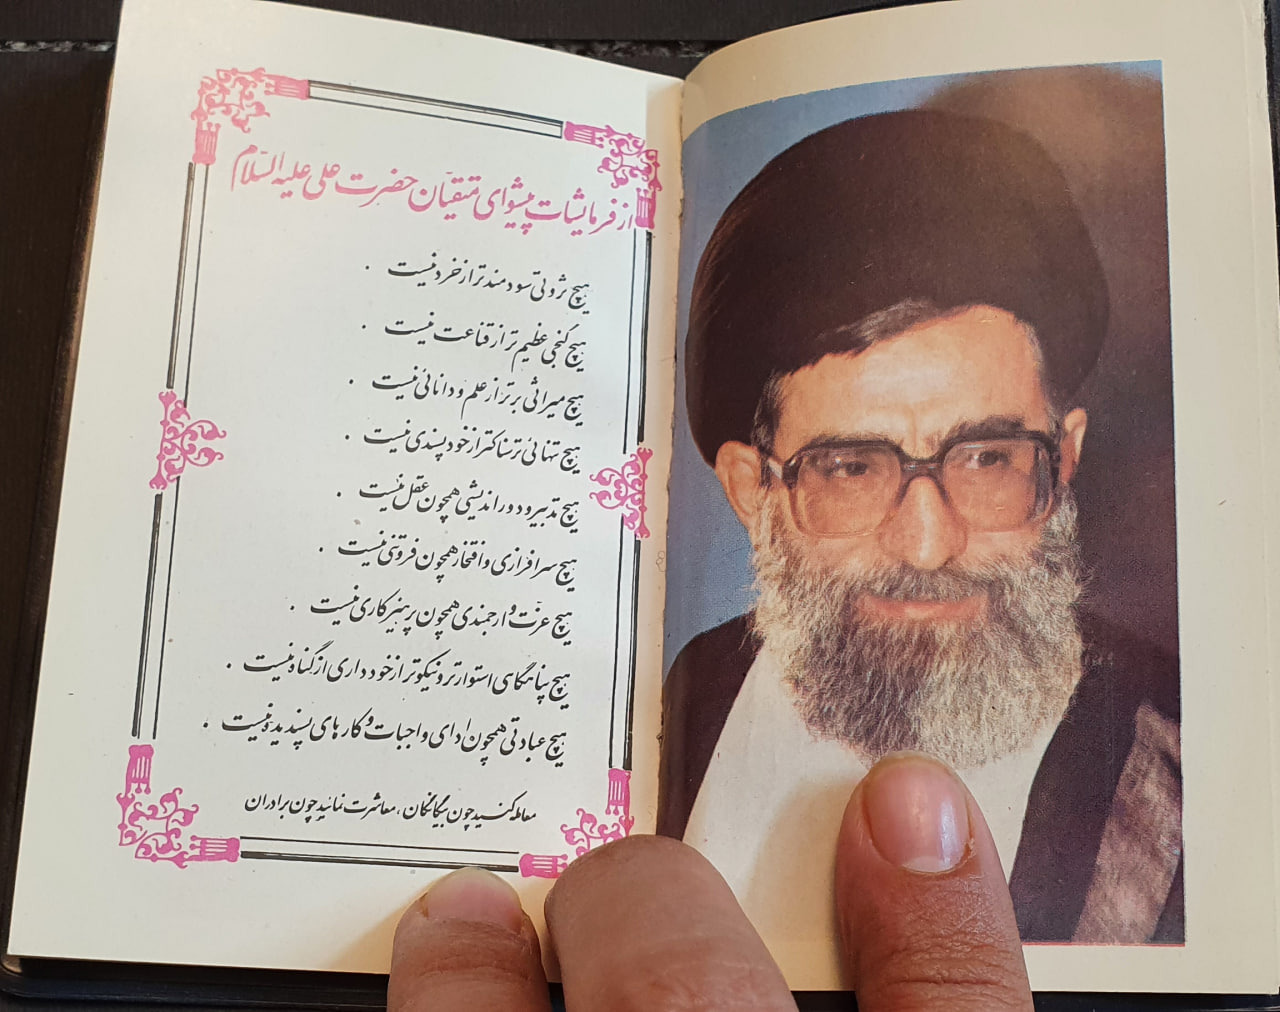 از فرمایشات پیشوای متقیان حضرت علی علیه السلام
هیچ ثروتی سودمندتر از خرد نیست .
هیچ گنجی عظیم تر از قناعت نیست .
هیچ میراثی برتر از علم و دانائی نیست .
هیچ تنهائی ترسناکتر از خودپسندی نیست .
هیچ تدبیر و دوراندیشی همچون عقل نیست .
هیچ سرافرازی و افتخار همچون فروتنی نیست .
هیچ عزت و ارجمندی همچون پرهیزکاری نیست .
هیچ پناهگاهی استوارتر و نیکوتر از خودداری از گناه نیست .
هیچ عبادتی همچون ادای واجبات و کارهای پسندیده نیست .
معامله کنید چون بیگانگان ، معاشرت نمائید چون برادران